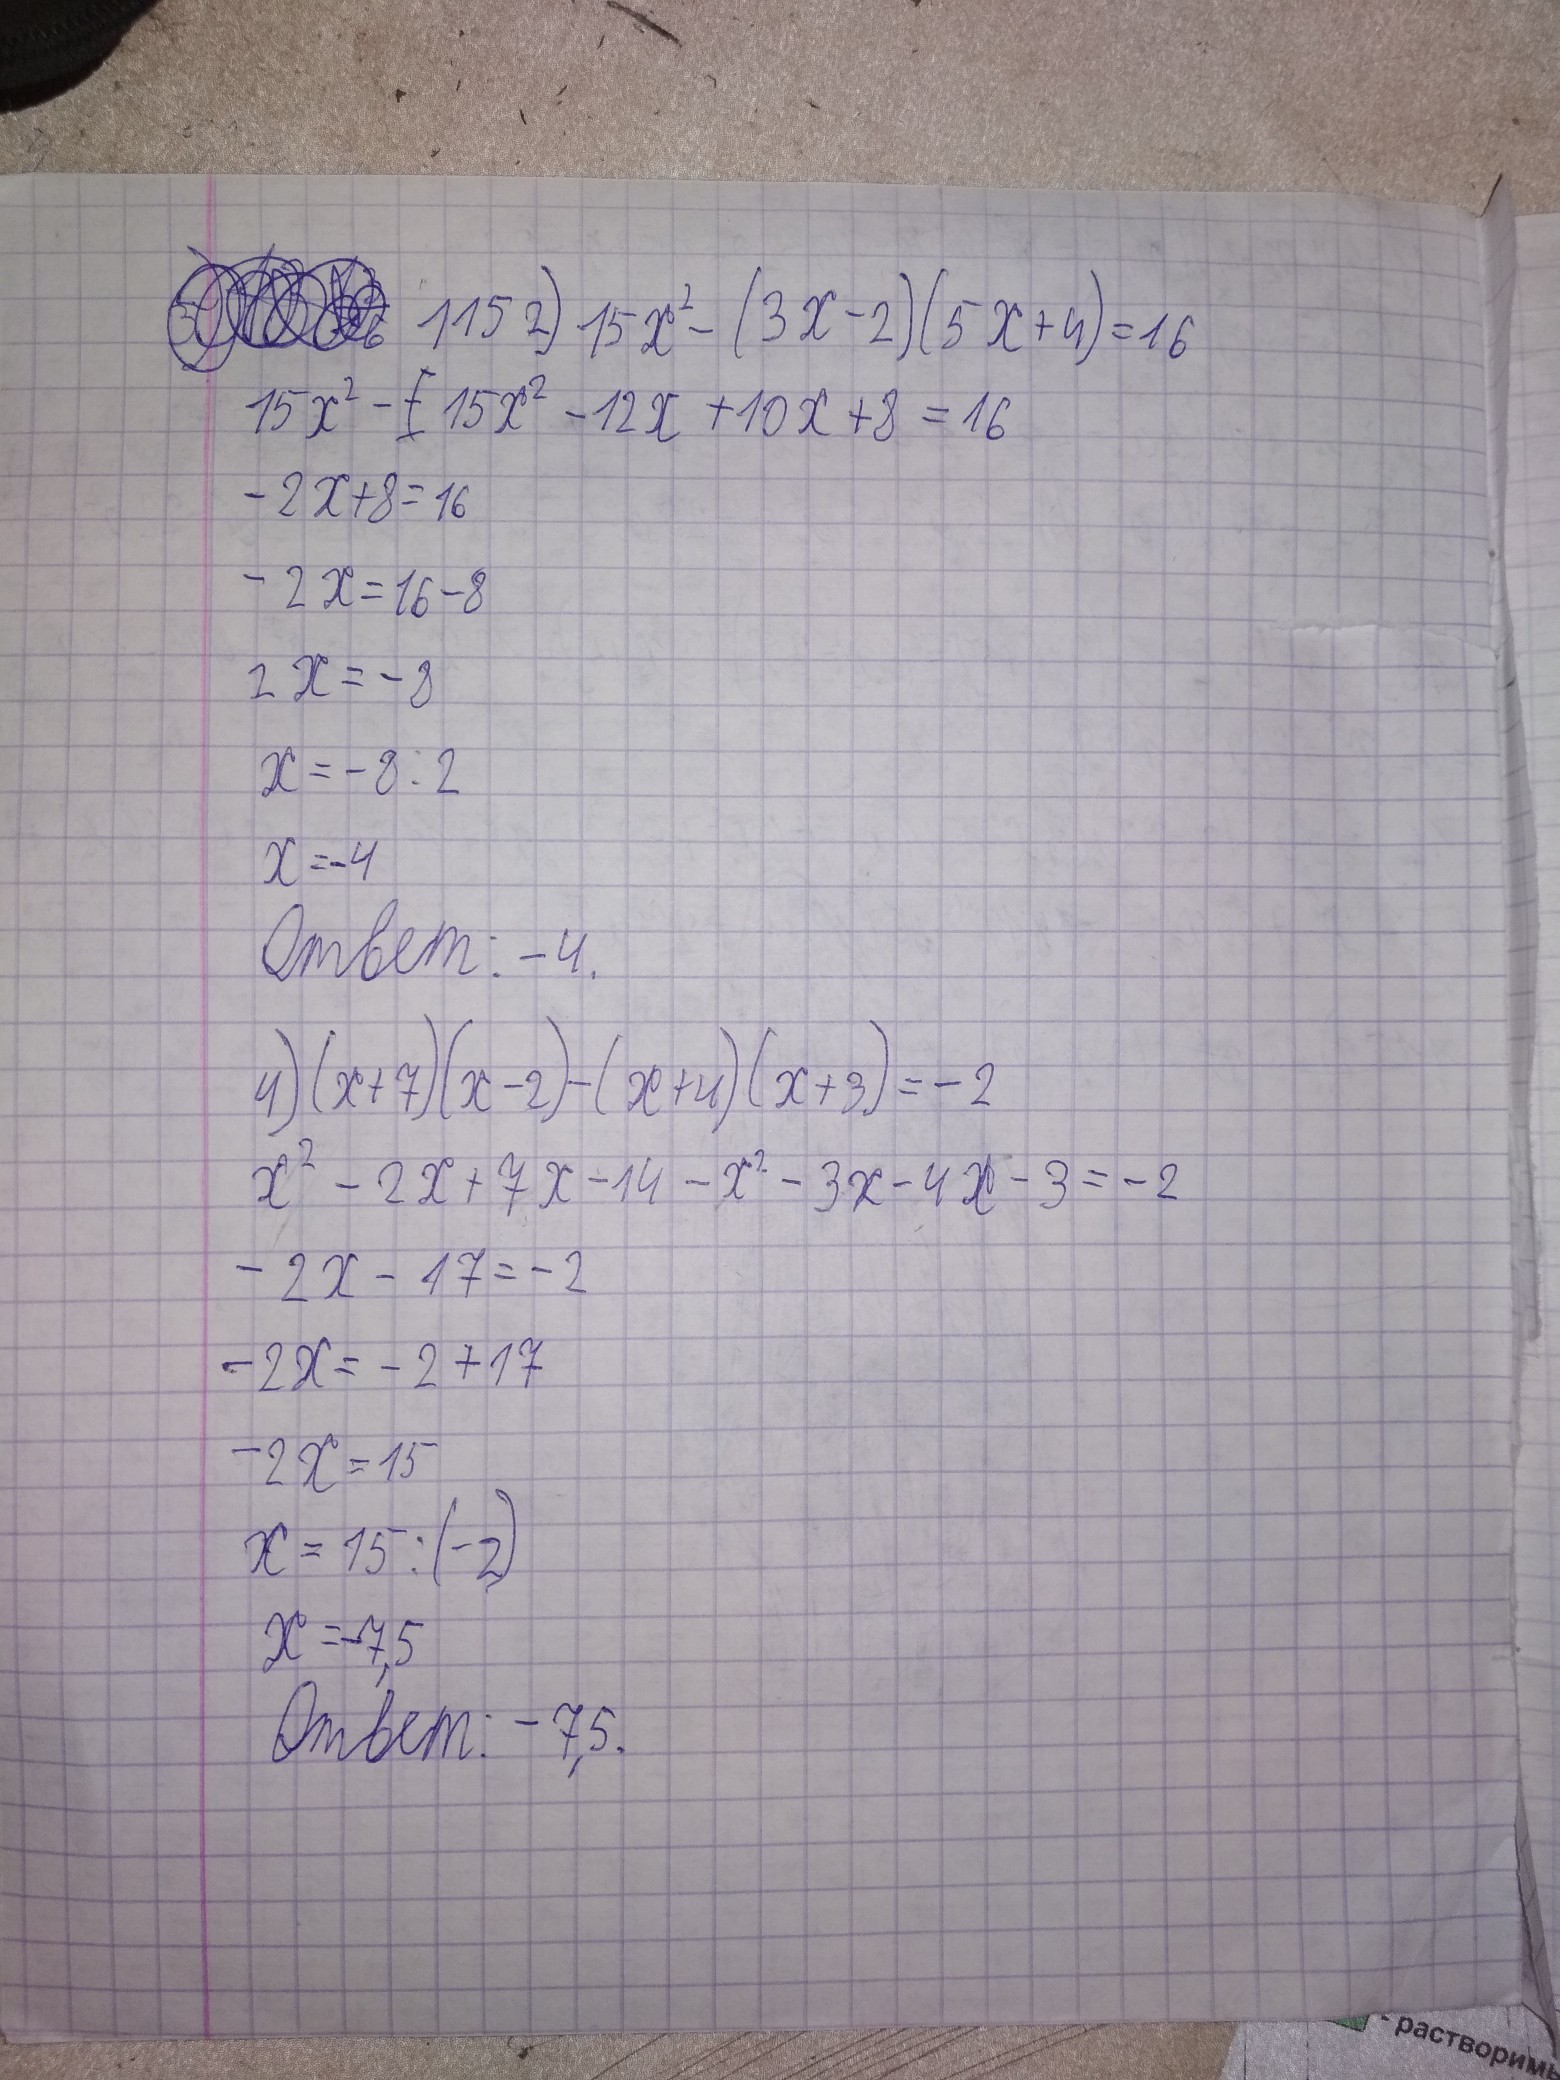 115 2) 15x² - (3x-2)(5x+4)=16
15x² - 15x² - 12x + 10x + 8 = 16
- 2x+8=16
- 2x=16-8
2x = -8
x = -8 : 2
x = -4
Ответ: -4.
4) (x+7)(x-2)-(x+4)(x+3)=-2
x² - 2x + 7x - 14 - x² - 3x - 4x - 3 = -2
- 2x - 17 = -2
-2x = -2 + 17
-2x = 15
x = 15 : (-2)
x = -7,5
Ответ: -7,5.
- растворимы